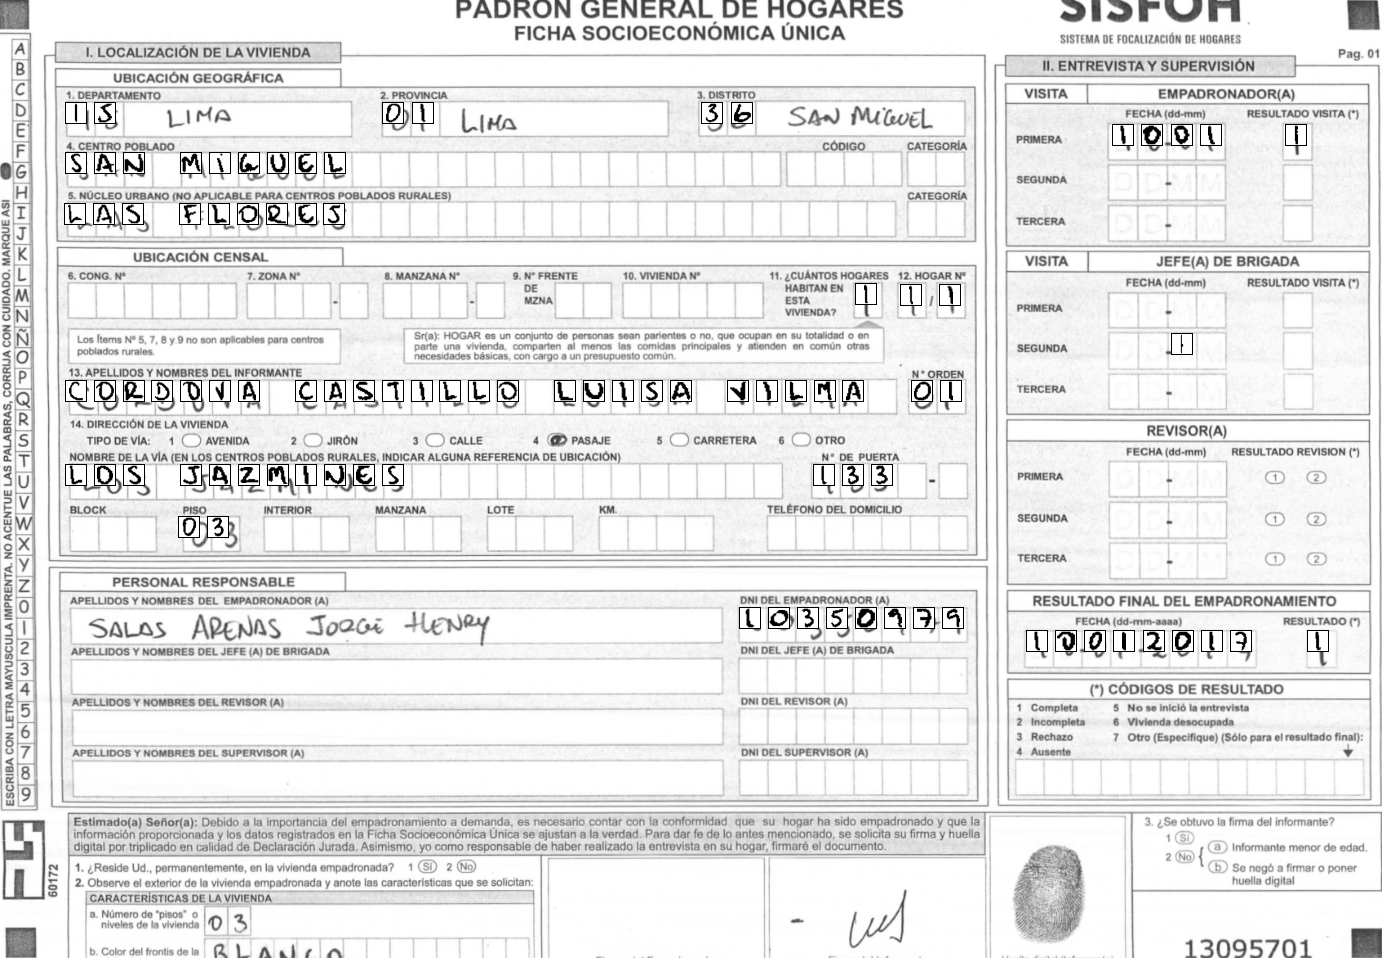 PADRÓN GENERAL DE HOGARES
FICHA SOCIOECONÓMICA ÚNICA
SISFOH
SISTEMA DE FOCALIZACIÓN DE HOGARES
Pag. 01
ESCRIBA CON LETRA MAYUSCULA IMPRENTA. NO ACENTUE LAS PALABRAS, CORRIJA CON CUIDADO. MARQUE ASI
A B C D E F G H I J K L M N Ñ O P Q R S T U V W X Y Z 0 1 2 3 4 5 6 7 8 9
I. LOCALIZACIÓN DE LA VIVIENDA
UBICACIÓN GEOGRÁFICA
1. DEPARTAMENTO 2. PROVINCIA 3. DISTRITO
15 LIMA 01 LIMA 36 SAN MIGUEL
4. CENTRO POBLADO CÓDIGO CATEGORÍA
SAN MIGUEL
5. NÚCLEO URBANO (NO APLICABLE PARA CENTROS POBLADOS RURALES) CATEGORÍA
LAS FLORES
UBICACIÓN CENSAL
6. CONG. Nº 7. ZONA Nº 8. MANZANA Nº 9. Nº FRENTE DE MZNA 10. VIVIENDA Nº 11. ¿CUÁNTOS HOGARES HABITAN EN ESTA VIVIENDA? 1 12. HOGAR Nº 1 / 1
Los Ítems Nº 5, 7, 8 y 9 no son aplicables para centros poblados rurales.
Sr(a): HOGAR es un conjunto de personas sean parientes o no, que ocupan en su totalidad o en
parte una vivienda, comparten al menos las comidas principales y atienden en común otras
necesidades básicas, con cargo a un presupuesto común.
13. APELLIDOS Y NOMBRES DEL INFORMANTE Nº ORDEN
CORDOVA CASTILLO LUISA VILMA 01
14. DIRECCIÓN DE LA VIVIENDA
TIPO DE VÍA: 1 AVENIDA 2 JIRÓN 3 CALLE 4 PASAJE 5 CARRETERA 6 OTRO
NOMBRE DE LA VÍA (EN LOS CENTROS POBLADOS RURALES, INDICAR ALGUNA REFERENCIA DE UBICACIÓN) Nº DE PUERTA
LOS JAZMINES 133 -
BLOCK PISO INTERIOR MANZANA LOTE KM. TELÉFONO DEL DOMICILIO
03
PERSONAL RESPONSABLE
APELLIDOS Y NOMBRES DEL EMPADRONADOR (A) DNI DEL EMPADRONADOR (A)
SALAS ARENAS JORGE HENRY 10350979
APELLIDOS Y NOMBRES DEL JEFE (A) DE BRIGADA DNI DEL JEFE (A) DE BRIGADA
APELLIDOS Y NOMBRES DEL REVISOR (A) DNI DEL REVISOR (A)
APELLIDOS Y NOMBRES DEL SUPERVISOR (A) DNI DEL SUPERVISOR (A)
II. ENTREVISTA Y SUPERVISIÓN
VISITA EMPADRONADOR(A)
FECHA (dd-mm) RESULTADO VISITA (*)
PRIMERA 10-01 1
SEGUNDA DD-MM
TERCERA DD-MM
VISITA JEFE(A) DE BRIGADA
FECHA (dd-mm) RESULTADO VISITA (*)
PRIMERA DD-MM
SEGUNDA DD-MM
TERCERA DD-MM
REVISOR(A)
FECHA (dd-mm) RESULTADO REVISION (*)
PRIMERA DD-MM 1 2
SEGUNDA DD-MM 1 2
TERCERA DD-MM 1 2
RESULTADO FINAL DEL EMPADRONAMIENTO
FECHA (dd-mm-aaaa) RESULTADO (*)
10-01-2017 1
(*) CÓDIGOS DE RESULTADO
1 Completa 5 No se inició la entrevista
2 Incompleta 6 Vivienda desocupada
3 Rechazo 7 Otro (Especifique) (Sólo para el resultado final):
4 Ausente
Estimado(a) Señor(a): Debido a la importancia del empadronamiento a demanda, es necesario contar con la conformidad que su hogar ha sido empadronado y que la
información proporcionada y los datos registrados en la Ficha Socioeconómica Única se ajustan a la verdad. Para dar fe de lo antes mencionado, se solicita su firma y huella
digital por triplicado en calidad de Declaración Jurada. Asimismo, yo como responsable de haber realizado la entrevista en su hogar, firmaré el documento.
1. ¿Reside Ud., permanentemente, en la vivienda empadronada? 1 Sí 2 No
2. Observe el exterior de la vivienda empadronada y anote las características que se solicitan:
CARACTERÍSTICAS DE LA VIVIENDA
a. Número de "pisos" o niveles de la vivienda 03
b. Color del frontis de la BLANCO
3. ¿Se obtuvo la firma del informante?
1 Sí
2 No
a Informante menor de edad.
b Se negó a firmar o poner huella digital
60172
13095701